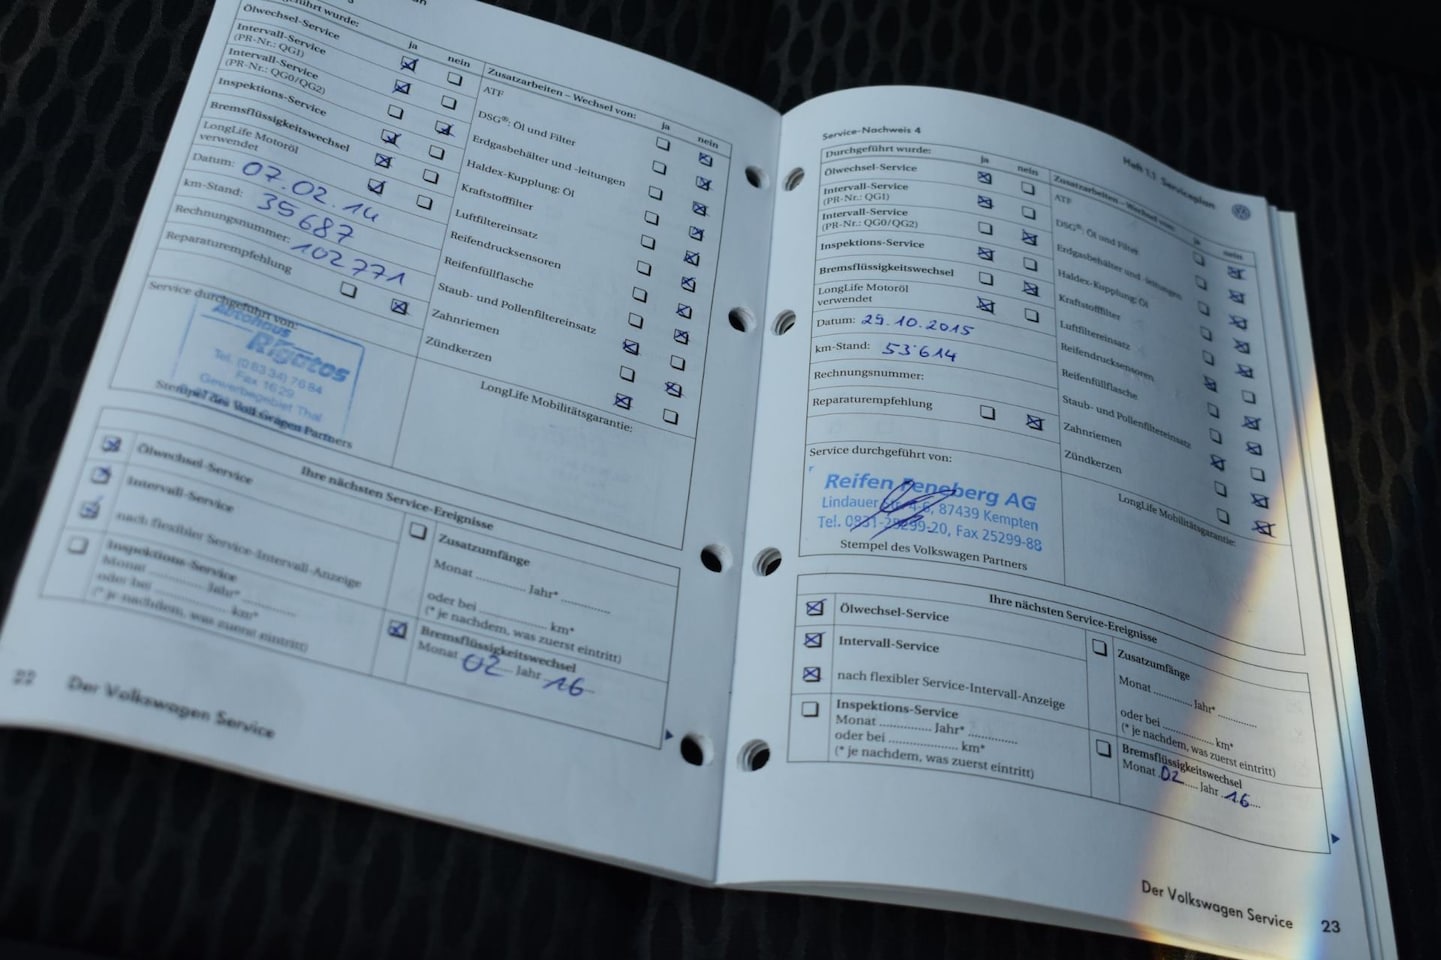 Ölwechsel-Service
ja nein
Intervall-Service
(PR-Nr.: QG1)
Intervall-Service
(PR-Nr.: QG0/QG2)
Inspektions-Service
Bremsflüssigkeitswechsel
LongLife Motoröl
verwendet
Datum: 07.02.14
km-Stand: 35687
Rechnungsnummer: 102771
Reparaturempfehlung
Service durchgeführt von:
Autohaus
Rigotos
Tel. (08334) 7684
Fax 1629
Gewerbegebiet Thal
Stempel des Volkswagen Partners
Zusatzarbeiten – Wechsel von: ja nein
ATF
DSG®: Öl und Filter
Erdgasbehälter und -leitungen
Haldex-Kupplung: Öl
Kraftstofffilter
Luftfiltereinsatz
Reifendrucksensoren
Reifenfüllflasche
Staub- und Pollenfiltereinsatz
Zahnriemen
Zündkerzen
LongLife Mobilitätsgarantie:
Ihre nächsten Service-Ereignisse
Ölwechsel-Service
Intervall-Service
nach flexibler Service-Intervall-Anzeige
Inspektions-Service
Monat ............ Jahr* ............
oder bei ............ km*
(* je nachdem, was zuerst eintritt)
Zusatzumfänge
Monat ............ Jahr* ............
oder bei ............ km*
(* je nachdem, was zuerst eintritt)
Bremsflüssigkeitswechsel
Monat 02 Jahr 16
22 Der Volkswagen Service
Service-Nachweis 4
Heft 1.1 Serviceplan
Durchgeführt wurde: ja nein
Ölwechsel-Service
Intervall-Service
(PR-Nr.: QG1)
Intervall-Service
(PR-Nr.: QG0/QG2)
Inspektions-Service
Bremsflüssigkeitswechsel
LongLife Motoröl
verwendet
Datum: 29.10.2015
km-Stand: 53614
Rechnungsnummer:
Reparaturempfehlung
Service durchgeführt von:
Reifen Feneberg AG
Lindauer 4-6, 87439 Kempten
Tel. 0831-25299-20, Fax 25299-88
Stempel des Volkswagen Partners
Zusatzarbeiten – Wechsel von: ja nein
ATF
DSG®: Öl und Filter
Erdgasbehälter und -leitungen
Haldex-Kupplung: Öl
Kraftstofffilter
Luftfiltereinsatz
Reifendrucksensoren
Reifenfüllflasche
Staub- und Pollenfiltereinsatz
Zahnriemen
Zündkerzen
LongLife Mobilitätsgarantie:
Ihre nächsten Service-Ereignisse
Ölwechsel-Service
Intervall-Service
nach flexibler Service-Intervall-Anzeige
Inspektions-Service
Monat ............ Jahr* ............
oder bei ............ km*
(* je nachdem, was zuerst eintritt)
Zusatzumfänge
Monat ............ Jahr* ............
oder bei ............ km*
(* je nachdem, was zuerst eintritt)
Bremsflüssigkeitswechsel
Monat 02 Jahr 16
Der Volkswagen Service 23